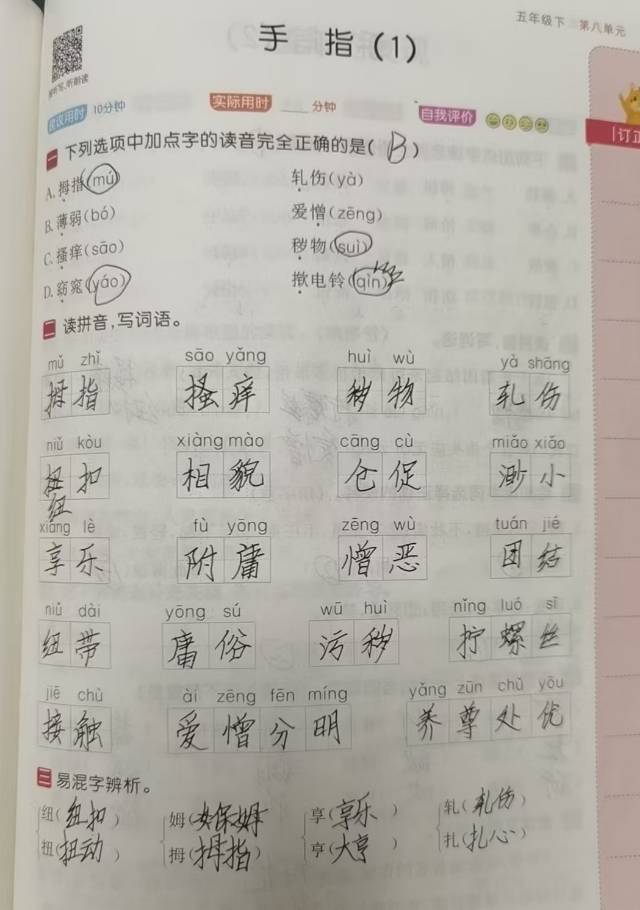 五年级下 第八单元
手 指 (1)
建议用时 10分钟 实际用时 ____ 分钟 自我评价
订正
一 下列选项中加点字的读音完全正确的是( B )
A. 拇指(mú) 轧伤(yà)
B. 薄弱(bó) 爱憎(zēng)
C. 搔痒(sāo) 秽物(suì)
D. 窈窕(yáo) 揿电铃(qìn)
二 读拼音,写词语。
mǔ zhǐ sāo yǎng huì wù yà shāng
拇指 搔痒 秽物 轧伤
niǔ kòu xiàng mào cāng cù miǎo xiǎo
扭扣 相貌 仓促 渺小
纽
xiǎng lè fù yōng zēng wù tuán jié
享乐 附庸 憎恶 团结
niǔ dài yōng sú wū huì nǐng luó sī
纽带 庸俗 污秽 拧螺丝
jiē chù ài zēng fēn míng yǎng zūn chǔ yōu
接触 爱憎分明 养尊处优
三 易混字辨析。
纽( 纽扣 ) 姆( 保姆 ) 享( 享乐 ) 轧( 轧伤 )
扭( 扭动 ) 拇( 拇指 ) 亨( 大亨 ) 扎( 扎心 )